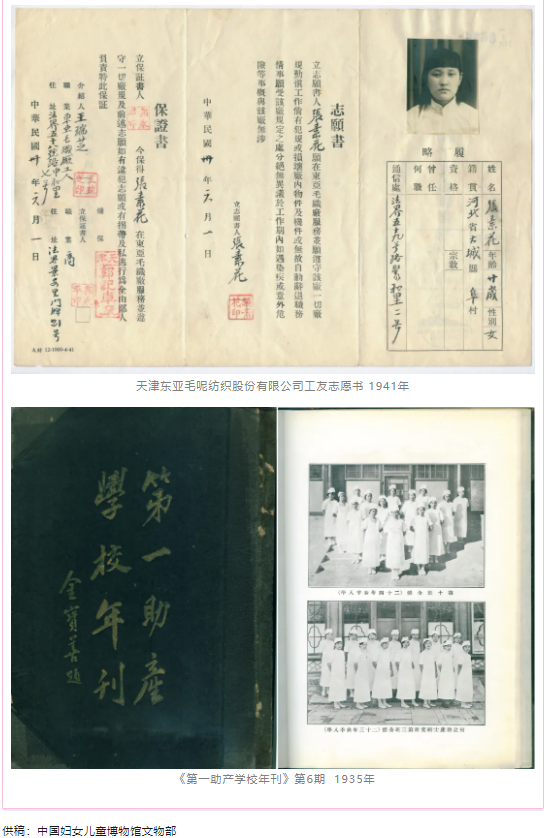 履略
姓名 張素花 年齡 廿歲 性別 女
籍貫 河北省大城縣 村
資格 宗教
曾任何職
通信處 法界
志願書
立志願書人張素花願在東亞毛織廠服務並願遵守該廠一切廠
規勤慎工作倘有犯規或損壞廠內物件及機件或無故自動辭退職務
情事願受該廠規定之處分絕無異議於工作期內如遇染疾或意外危
險等事概與該廠無涉
立志願書人張素花
中華民國卅年六月一日
保證書
立保証書人 今保得張素花在東亞毛織廠服務並遵
守一切廠規及前述志願如有違犯志願或有拐帶及私逃行為全由保人
負責特此保証
介紹人 王瑞芝
職業 東亞毛織廠工人
住址
立保証書人
職業 商
住址
中華民國卅年六月一日
天津东亚毛呢纺织股份有限公司工友志愿书 1941年
第一助產
學校年刊
金寶善題
《第一助产学校年刊》第6期 1935年
供稿：中国妇女儿童博物馆文物部